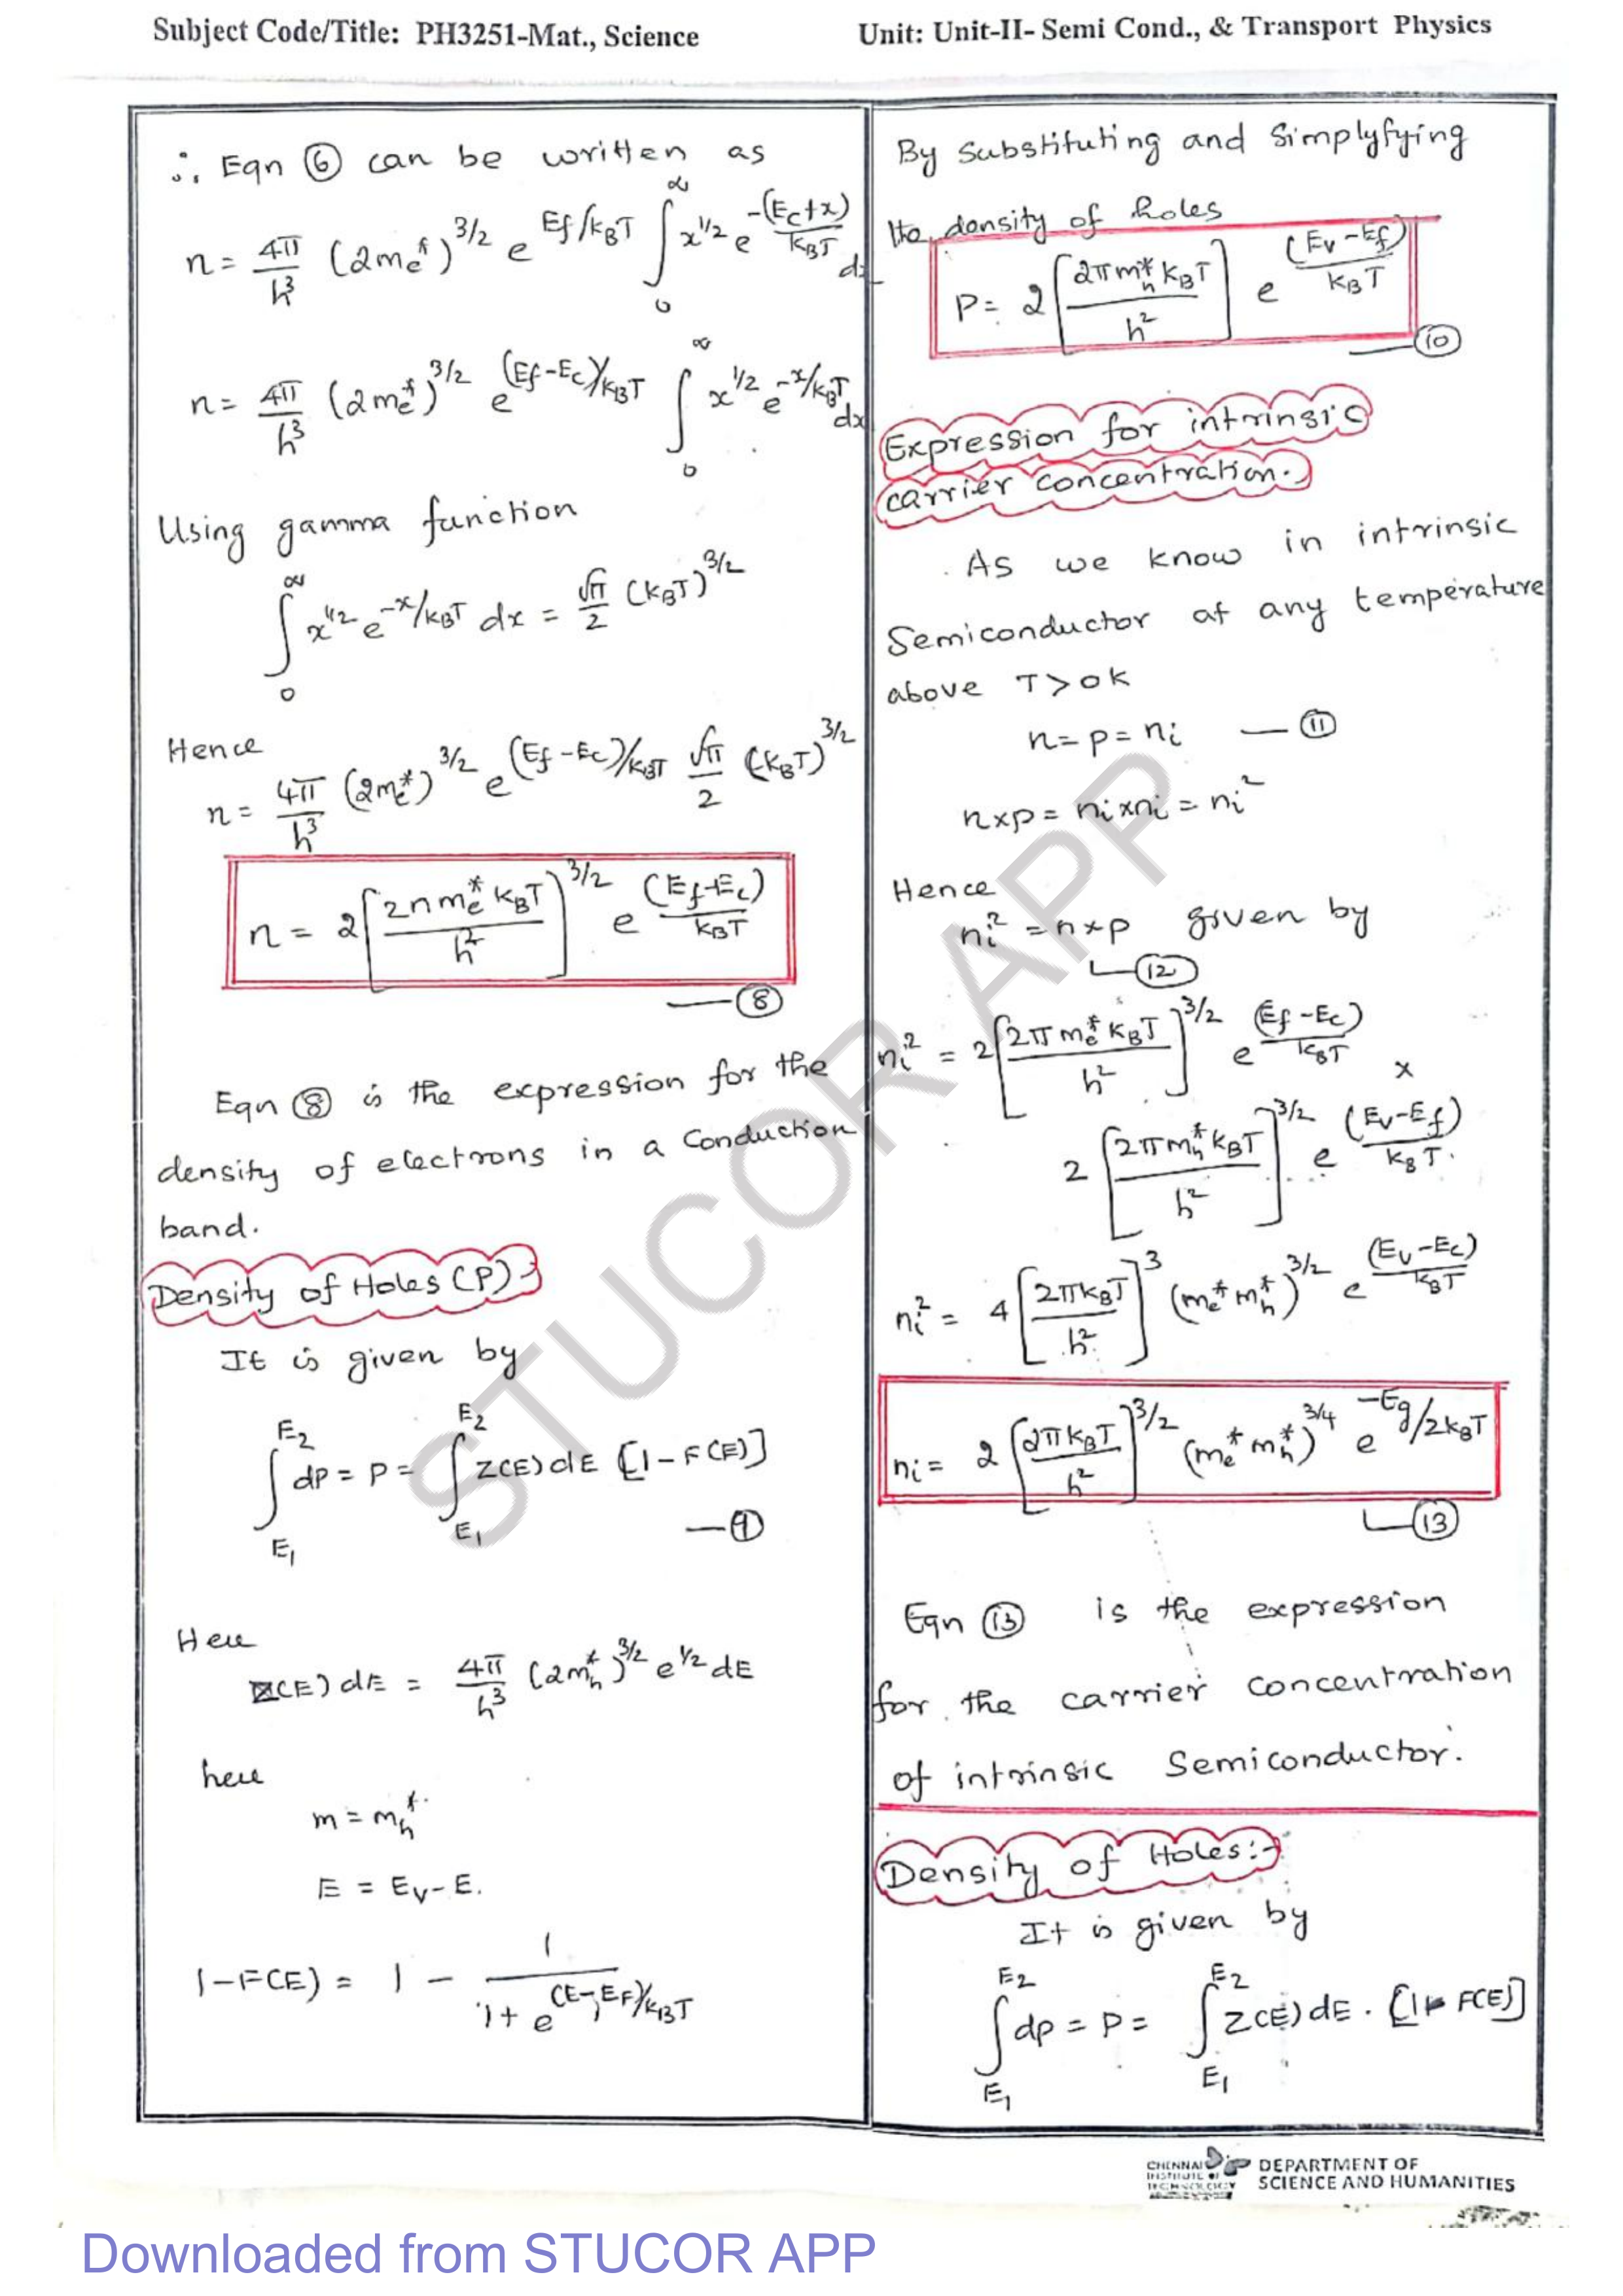 Subject Code/Title: PH3251-Mat., Science
Unit: Unit-II- Semi Cond., & Transport Physics
∴ Eqn ⑥ can be written as
n = 4π/h³ (2me*)^3/2 e^Ef/kBT ∫₀^∞ x^1/2 e^-(Ec+x)/kBT dx
n = 4π/h³ (2me*)^3/2 e^(Ef-Ec)/kBT ∫₀^∞ x^1/2 e^-x/kBT dx
Using gamma function
∫₀^∞ x^1/2 e^-x/kBT dx = √π/2 (kBT)^3/2
Hence
n = 4π/h³ (2me*)^3/2 e^(Ef-Ec)/kBT √π/2 (kBT)^3/2
n = 2[2nme* kBT/h²]^3/2 e^(Ef-Ec)/kBT
— ⑧
Eqn ⑧ is the expression for the
density of electrons in a Conduction
band.
Density of Holes (P) :-
It is given by
∫E1^E2 dp = P = ∫E1^E2 Z(E) dE [1-F(E)]
— ⑨
Here
Z(E) dE = 4π/h³ (2mh*)^3/2 e^1/2 dE
here
m = mh*
E = Ev-E.
1-F(E) = 1 - 1/1+e^(E-EF)/kBT
By Substituting and Simplyfying
the density of holes
P = 2[2πmh* kBT/h²] e^(Ev-Ef)/kBT
— ⑩
Expression for intrinsic
carrier concentration.
As we know in intrinsic
Semiconductor at any temperature
above T>0K
n=p=ni — ⑪
n×p = ni×ni = ni²
Hence
ni² = n×p given by
— ⑫
ni² = 2[2πme* kBT/h²]^3/2 e^(Ef-Ec)/kBT ×
2[2πmh* kBT/h²]^3/2 e^(Ev-Ef)/kBT.
ni² = 4[2πkBT/h²]^3 (me* mh*)^3/2 e^(Ev-Ec)/kBT
ni = 2[2πkBT/h²]^3/2 (me* mh*)^3/4 e^-Eg/2kBT
— ⑬
Eqn ⑬ is the expression
for the carrier concentration
of intrinsic Semiconductor.
Density of Holes:-
It is given by
∫E1^E2 dp = P = ∫E1^E2 Z(E) dE . [1- F(E)]
STUCOR APP
CHENNAI
INSTITUTE OF
TECHNOLOGY
DEPARTMENT OF
SCIENCE AND HUMANITIES
Downloaded from STUCOR APP